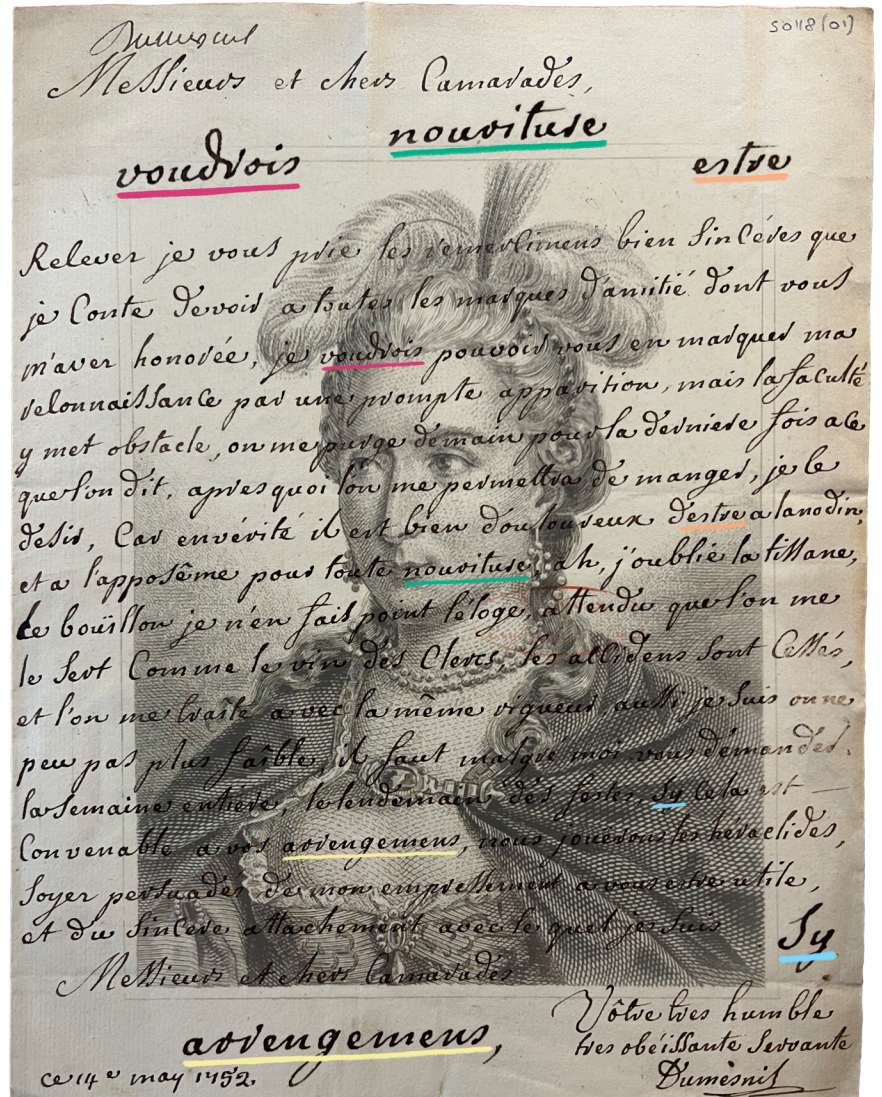 S018(01)
Dumesnil
Messieurs et chers Camarades,
nouriture
voudrois
estre
Relever je vous prie les remerlimens bien Sincéres que
je Conte devoir a toutes les marques d'amitié dont vous
m'aver honorée, je voudrois pouvoir vous en marquer ma
reconnaissance par une prompte apparition, mais la faculté
y met obstacle, on me purge demain pour la derniere fois a ce
que l'on dit, apres quoi l'on me permettra de manger, je le
desir, Car envérité il est bien douloureux d'estre a lanodin,
et a l'apposême pour toute nouriture, ah, j'oublie la tissane,
le bouïllon je n'en fais point l'éloge, attendu que l'on me
le sert Comme le vin des Clercs, les accidens sont Cessés,
et l'on me traîte avec la même rigueur, aussi je suis on ne
peu pas plus faîble, il faut malgré moi vous demander
la Semaine entière, le lendemain des festes, Sy Cela est
Convenable a vos arrengemens, nous jouerons les héraclides,
Soyer persuadés de mon empressement a vous estre utile,
et du Sincere attachement avec le quel je Suis
Sy
Messieurs et chers Camarades
Vôtre tres humble
arrengemens,
tres obéissante Servante
ce 14e may 1752.
Dumèsnil